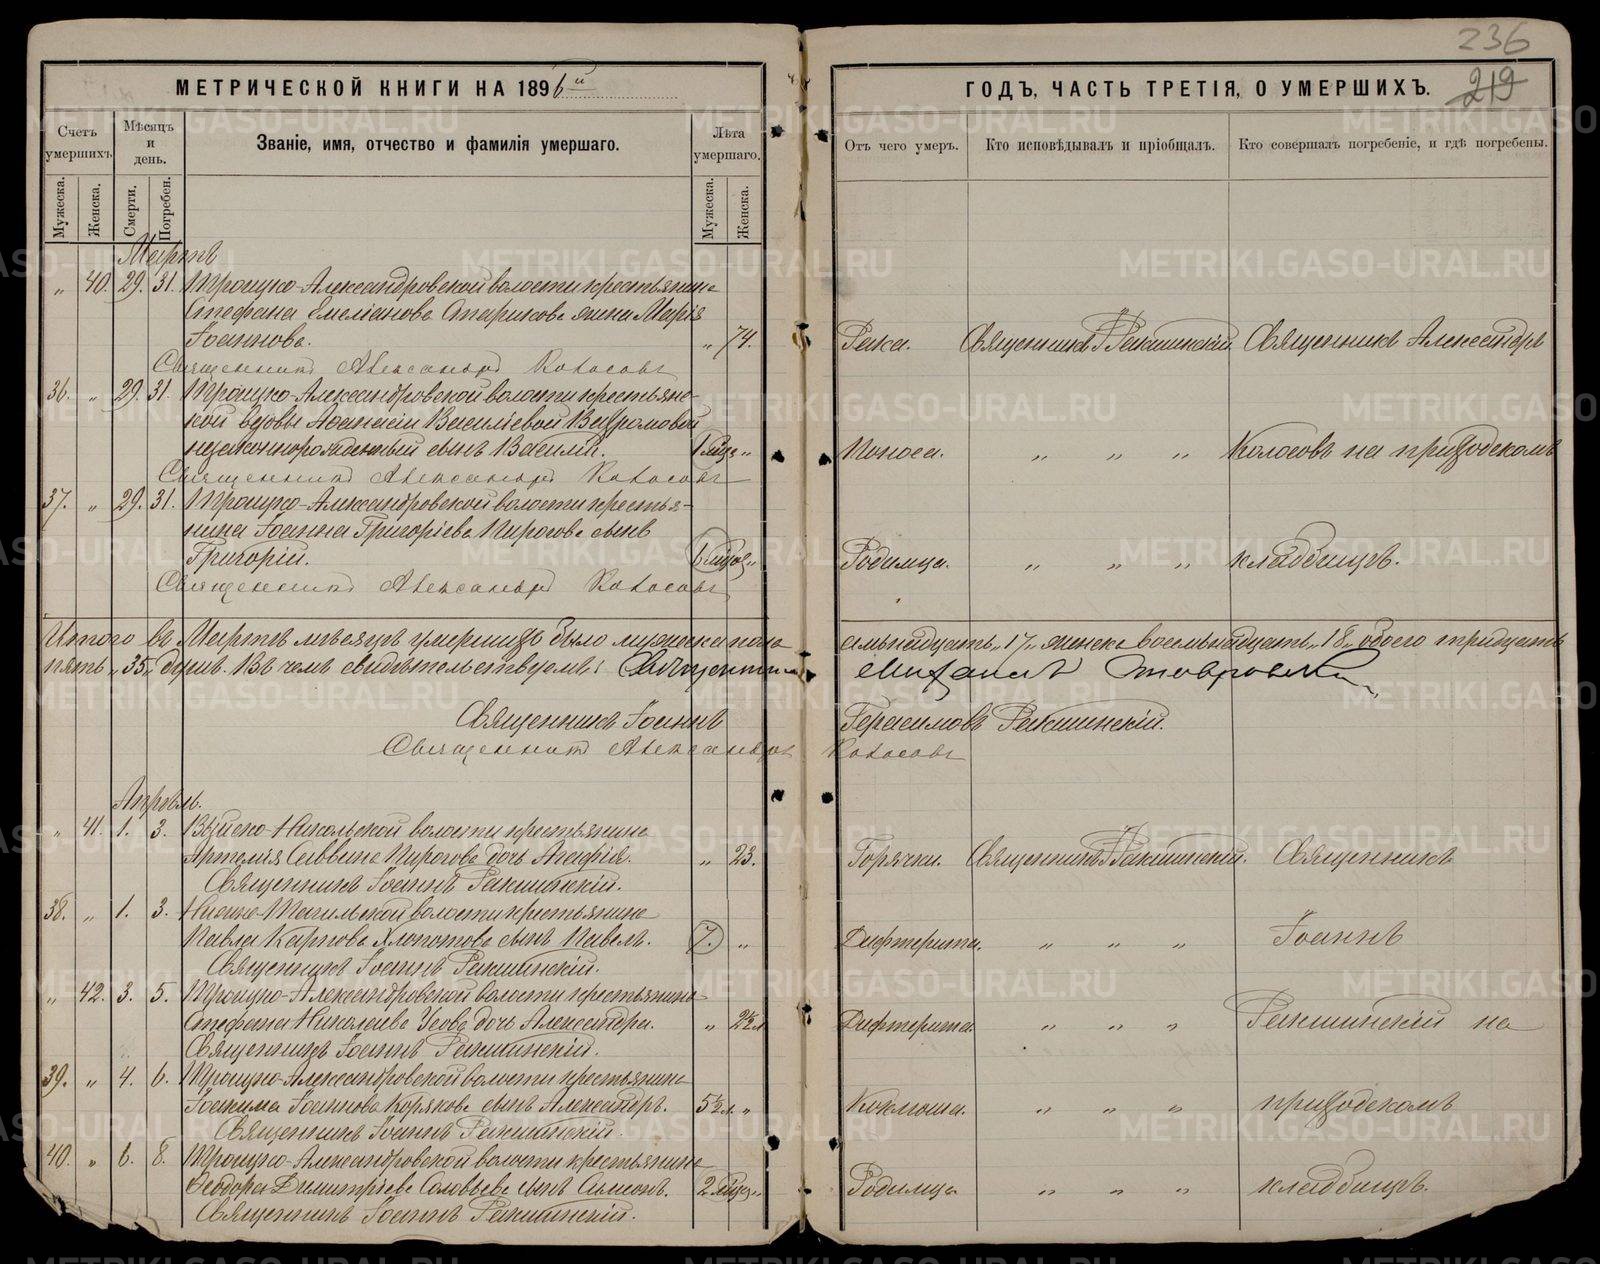 236
219
МЕТРИЧЕСКОЙ КНИГИ НА 1896й
ГОДЪ, ЧАСТЬ ТРЕТІЯ, О УМЕРШИХЪ.
Счетъ умершихъ.
Мѣсяцъ и день.
Званіе, имя, отчество и фамилія умершаго.
Лѣта умершаго.
Отъ чего умеръ.
Кто исповѣдывалъ и пріобщалъ.
Кто совершалъ погребеніе, и гдѣ погребены.
Мужеска. Женска. Смерти. Погребен. Мужеска. Женска.
Мартъ
„ 40. 29. 31. Троицко-Александровской волости крестьянина
Стефана Емеліанова жена Марія
Іоаннова. „ 74. Рака. Священникъ І Ракшинскій. Священникъ Александръ
Священникъ Александръ Колосовъ
36. „ 29. 31. Троицко-Александровской волости крестьян-
ской вдовы Васильевой
незаконнорожденный сынъ Василій. 1 мѣс „ Поноса. „ „ „ Колосовъ на приходскомъ
Священникъ Александръ Колосовъ
37. „ 29. 31. Троицко-Александровской волости крестья-
нина Іоанна Григоріева Пирогова сынъ
Григорій. 6 мѣс. „ Родимца. „ „ „ кладбищѣ.
Священникъ Александръ Колосовъ
Итого въ Мартѣ мѣсяцѣ умершихъ было мужеска пола семьнадцать „17„ женска восемьнадцать „18„ обоего тридцать
пять „35„ душъ. Въ чемъ свидѣтельствуемъ: Священникъ Михаилъ
Священникъ Іоаннъ Герасимовъ Ракшинскій.
Священникъ Александръ Колосовъ
Апрѣль.
„ 41. 1. 3. Выйско-Никольской волости крестьянина
Артемія Саввина Пирогова дочь Агафія. „ 23. Горячки. Священникъ І Ракшинскій. Священникъ
Священникъ Іоаннъ Ракшинскій.
38. „ 1. 3. Нижне-Тагильской волости крестьянина
Павла Карпова Хлопотова сынъ Павелъ. 7. „ Дифтерита. „ „ „ Іоаннъ
Священникъ Іоаннъ Ракшинскій.
„ 42. 3. 5. Троицко-Александровской волости крестьянина
Стефана Николаева Усова дочь Александра. „ 2½ л Дифтерита. „ „ „ Ракшинскій на
Священникъ Іоаннъ Ракшинскій.
39. „ 4. 6. Троицко-Александровской волости крестьянина
Іоакима Іоаннова Корякова сынъ Александръ. 5½ л. „ Коклюша. „ „ „ приходскомъ
Священникъ Іоаннъ Ракшинскій.
40. „ 6. 8. Троицко-Александровской волости крестьянина
Ѳеодора Димитріева Соловьева сынъ Симеонъ. 2 мѣс „ Родимца „ „ „ кладбищѣ.
Священникъ Іоаннъ Ракшинскій.
METRIKI.GASO-URAL.RU